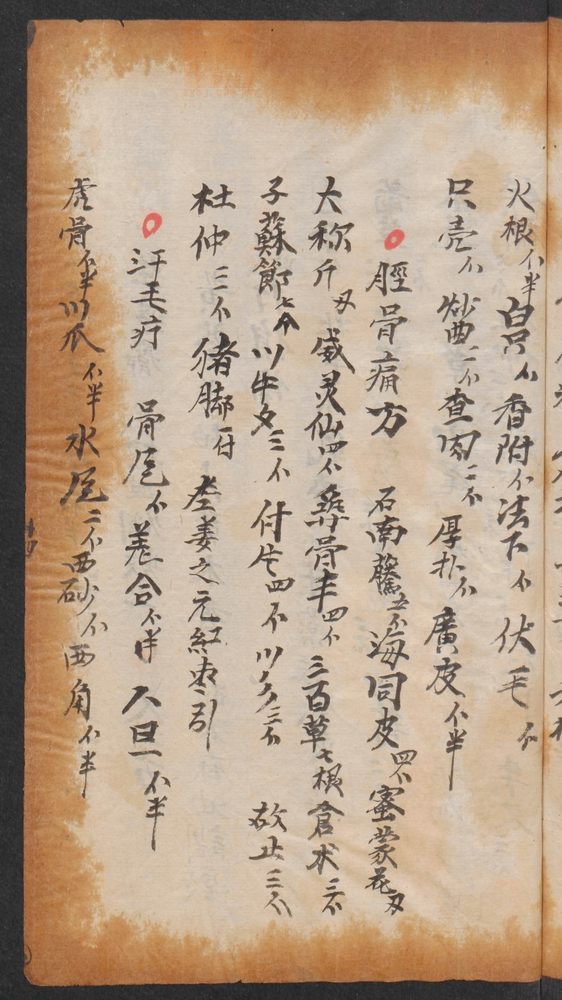 火根不半 白只不 香附不 法下不 伏毛不
只壳不 炒曲二不 查肉二不 厚朴不 廣皮不半
胫骨痛方 石南藤五不 海同皮四不 蜜蒙花刄
大称斤刄 威灵仙四不 骨丰四不 三百草七根 倉术三不
子蘇節七个 川牛夕三不 付片四不 川多三不 故止三不
杜仲三不 猪脚一付 老姜之元 紅枣引
汗毛疔 骨尾不 羔合不半 人旦一不半
虎骨不半 川爪不半 水尾二不 西砂不 西角不半